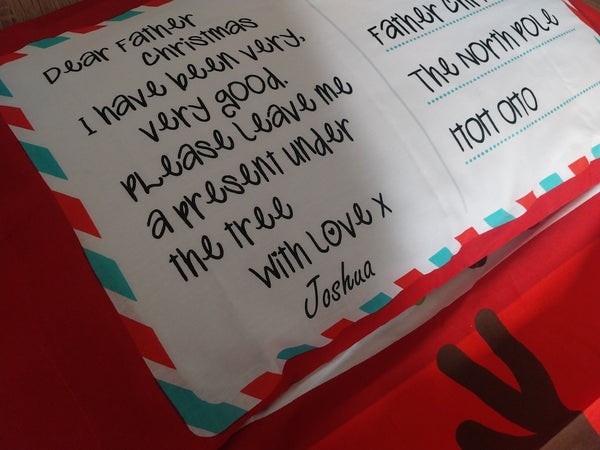 Dear Father
Christmas
I have been very,
very good.
Please leave me
a present under
the tree
with love x
Joshua
Father
The North Pole
HOH OHO